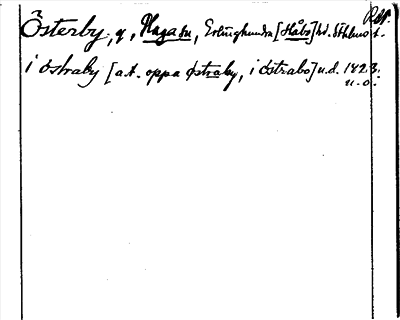 Rep.
Österby, g, Haga sn, Erlinghundra [Håbo] hd. Sthlms l.
i östraby [a.t. oppa östraby, i östrabo] u.d. 1823.
u.o.